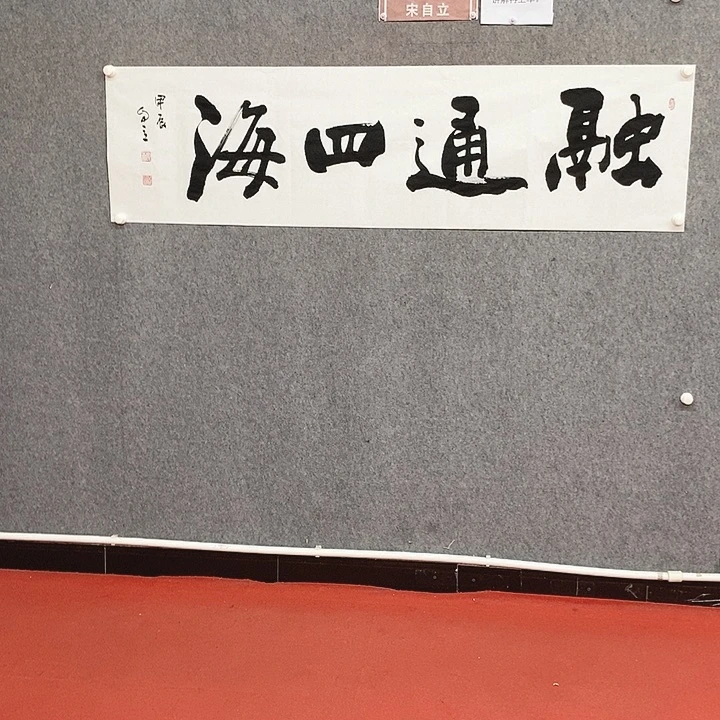 宋自立
融通四海
甲辰
自立